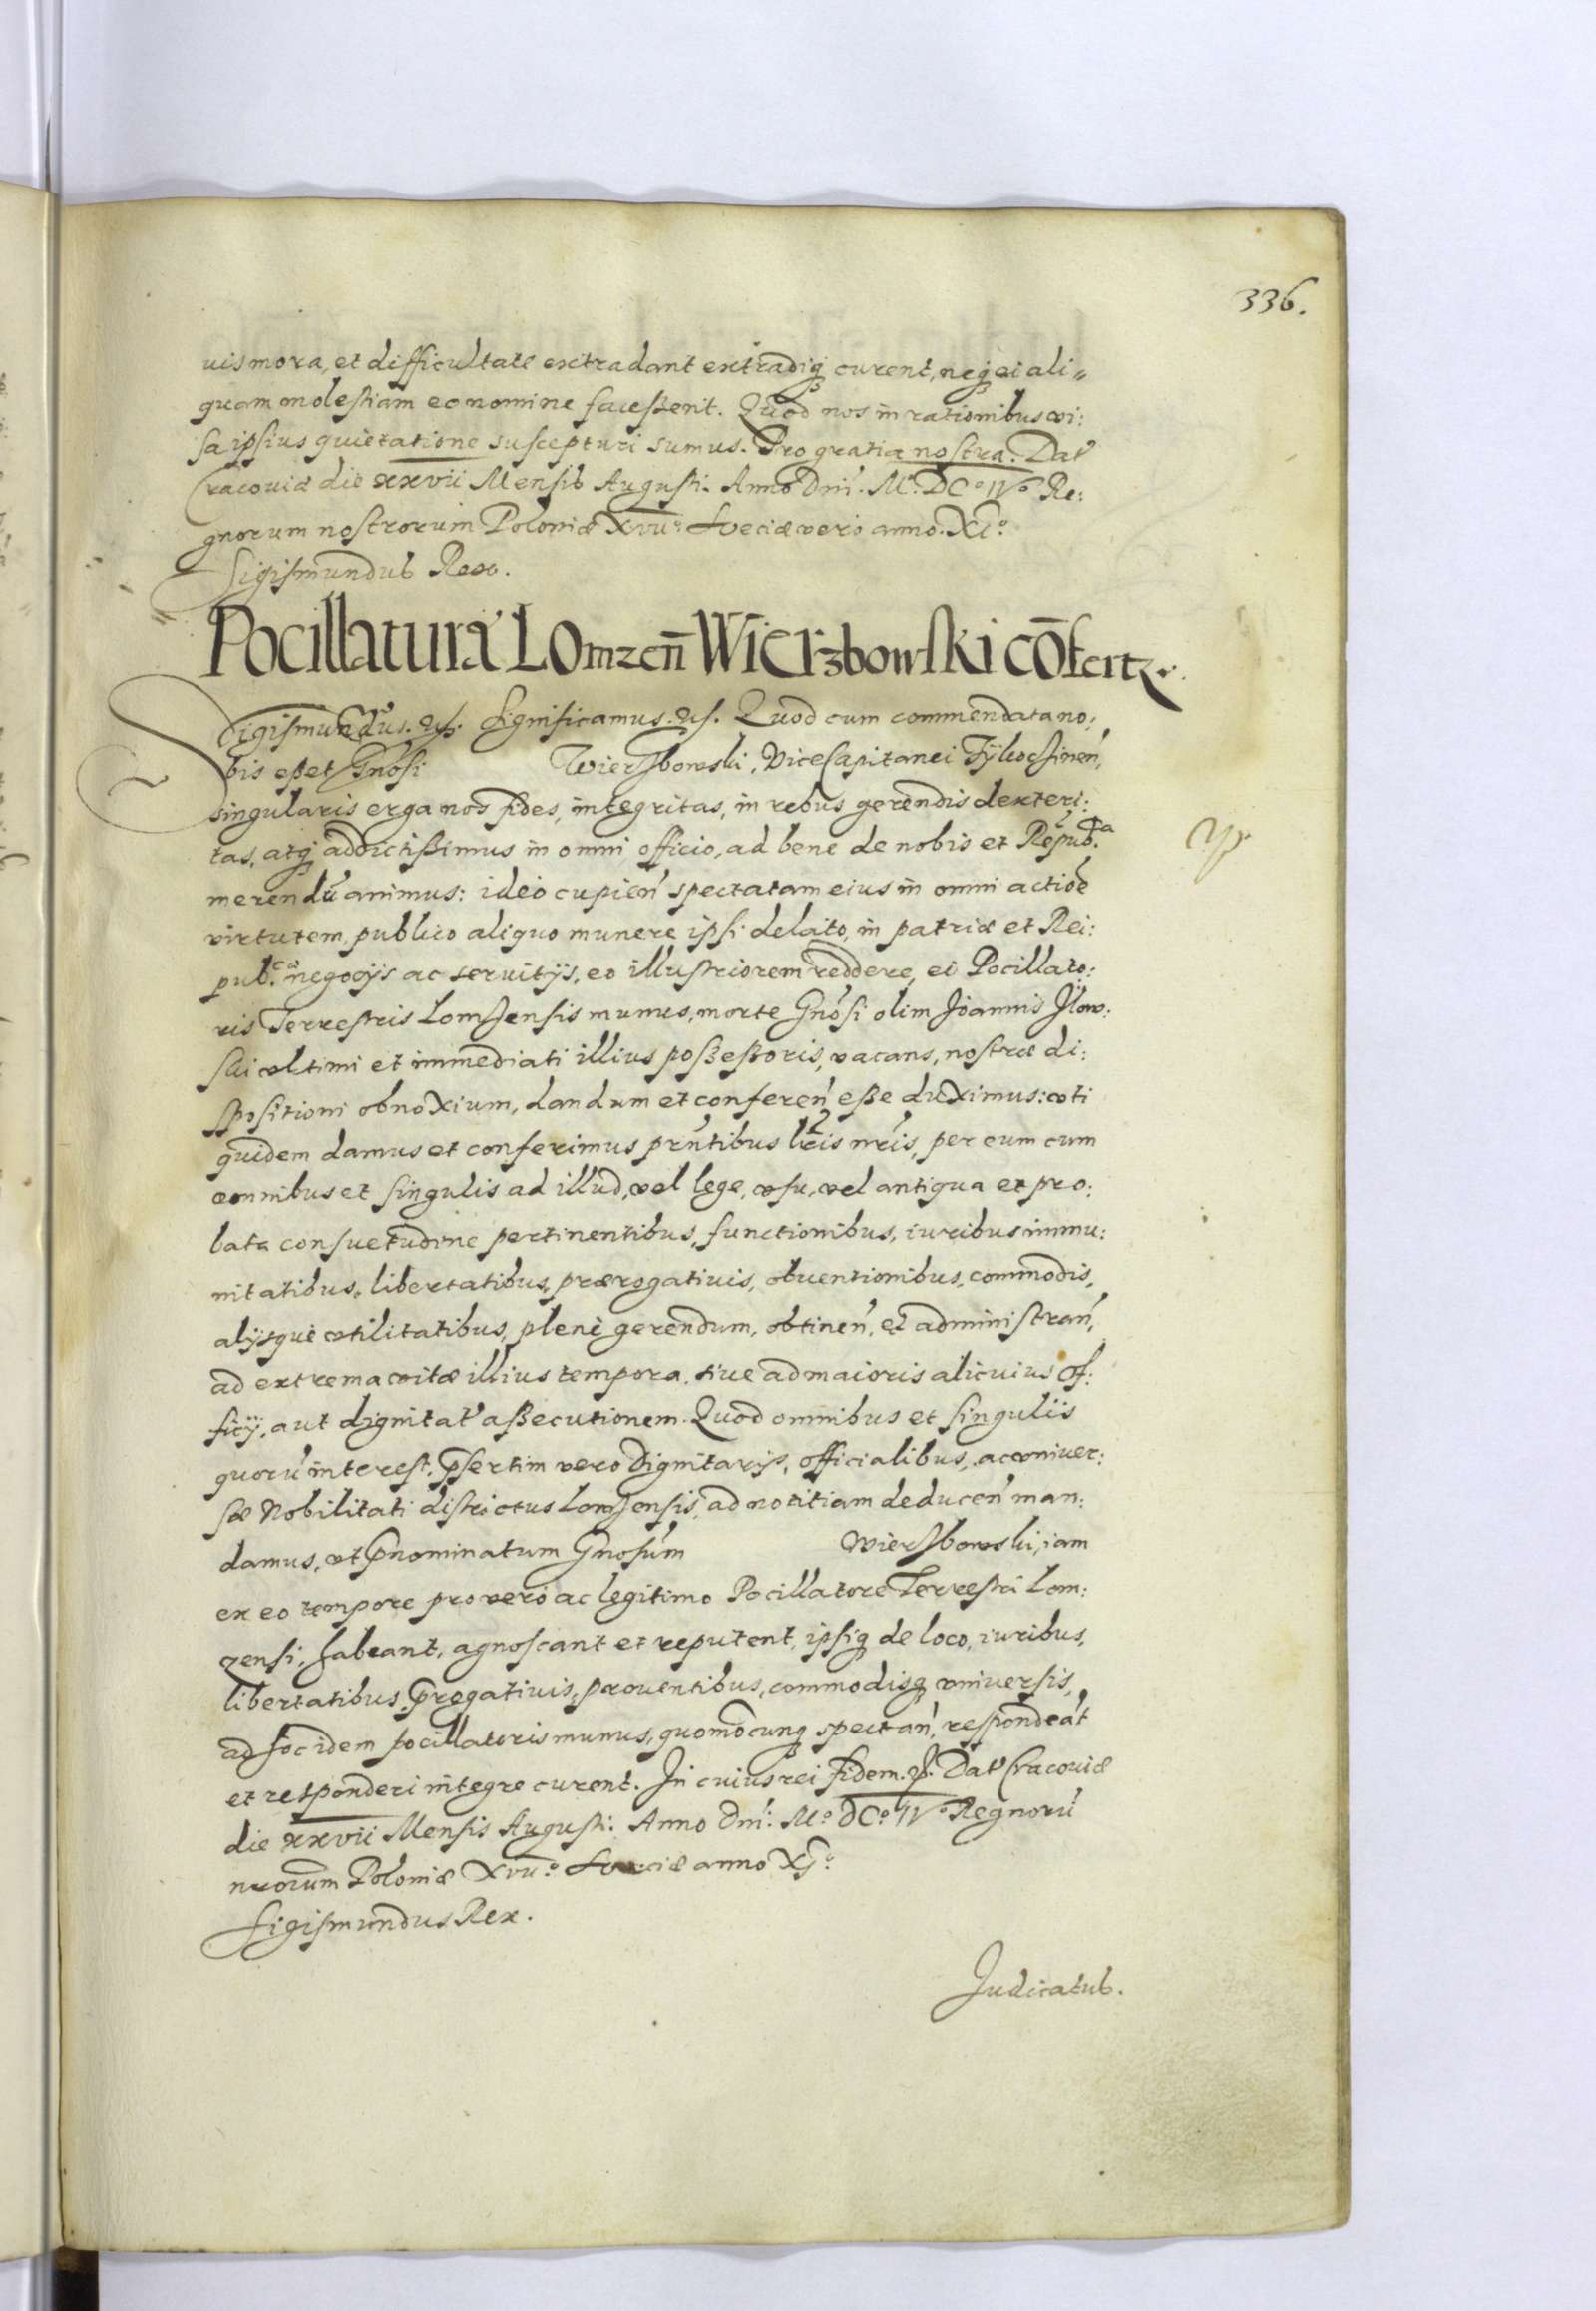 336.
uis mora, et difficultate extradant extradiq3 curent, neq3 ei ali„
quam molestiam eo nomine facessent. Quod nos in rationibus vi:
sa ipsius quietatione suscepturi sumus. Pro gratia nostra. Dat
Cracoviæ die xxvii Mensis Augusti. Anno Dni. M.º DCº IVº Re:
gnorum nostrorum Poloniæ XVIIº Sveciæ vero anno XIº
Sigismundus Rex.
Pocillatura Lomzeñ Wierzbowski cōfertz.
Sigismundus. etc. Significamus. etc. Quod cum commendata no:
bis esset Gnosi Wierzbowski, ViceCapitanei Tykocsinen,
singularis erga nos fides, integritas, in rebus gerendis dexteri:
tas, atq3 addictissimus in omni officio, ad bene de nobis et Repub.ca
merendū animus: ideo cupien spectatam eius in omni actioē
virtutem, publico aliquo munere ipsi delato, in patriæ et Rei:
pub.cæ negocijs ac seruitijs, eo illustriorem reddere, ei Pocillato:
ris Terrestris Lomzensis munus, morte Gnosi olim Joannis Ilow:
ski vltimi et immediati illius possessoris, vacans, nostræ di:
spositioni obnoxium, dandum et conferen esse duximus: vti
quidem damus et conferimus prntibus lris nris, per eum cum
omnibus et singulis ad illud, vel lege, vsu, vel antiqua et pro:
bata consuetudine pertinentibus, functionibus, iuribus immu:
nitatibus, libertatibus, prærogatiuis, obuentionibus, commodis,
alijsque vtilitatibus, plenè gerendum, obtinen, et administran,
ad extrema vitæ illius tempora, siue ad maioris alicuius of:
ficij, aut dignitat assecutionem. Quod omnibus et singulis
quorū interest, p̄sertim vero Dignitarijs, officialibus, ac vniuer:
sæ Nobilitati districtus Lomzensis, ad notitiam deducen man:
damus, vt p̄nominatum Gnosum Wierzbowski, iam
ex eo tempore pro vero ac legitimo Pocillatore Terrestri Lom:
zensi, habeant, agnoscant et reputent, ipsiq3 de loco, iuribus,
libertatibus, p̄rogatiuis, prouentibus, commodisq3 vniuersis,
ad hoc idem pocillatoris munus, quomocunq3 spectan, respondeāt
et responderi integre curent. In cuius rei fidem. etc. Dat Cracoviæ
die xxvii Mensis Augusti. Anno Dni. Mº DCº IVº Regnorū
nrorum Poloniæ XVIIº Sveciæ anno XIº
Sigismundus Rex.
Judicatus.